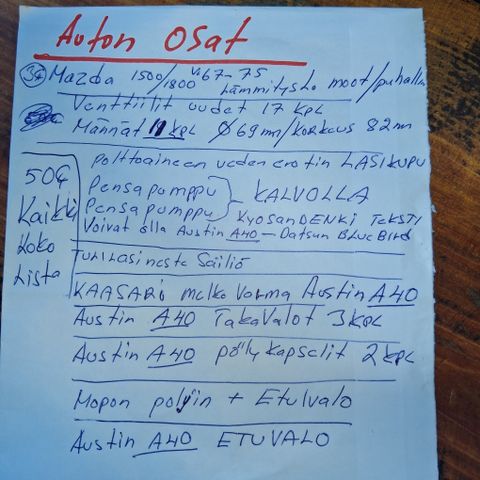 Auton osat
3€ Mazda 1500/1800 v67-75 Lämmitysko moot/puhallin
Venttiilit uudet 17 kpl
Männät 11 kpl Ø 69 mm/korkeus 82 mm
polttoaineen vedenerotin LASIKUPU
Pensapumppu
Pensapumppu
KALVOLLA
KYOSANDENKI TEKSTI
Voivat olla Austin A40 - Datsun BLUEBIRD
50€
Kaikki
Koko
Lista
Tuulilasineste Säiliö
KAASARI melko varma Austin A40
Austin A40 TakaValot 3 KPL
Austin A40 pölykapselit 2 kpl
Mopon polyin + Etulvalo
Austin A40 ETUVALO